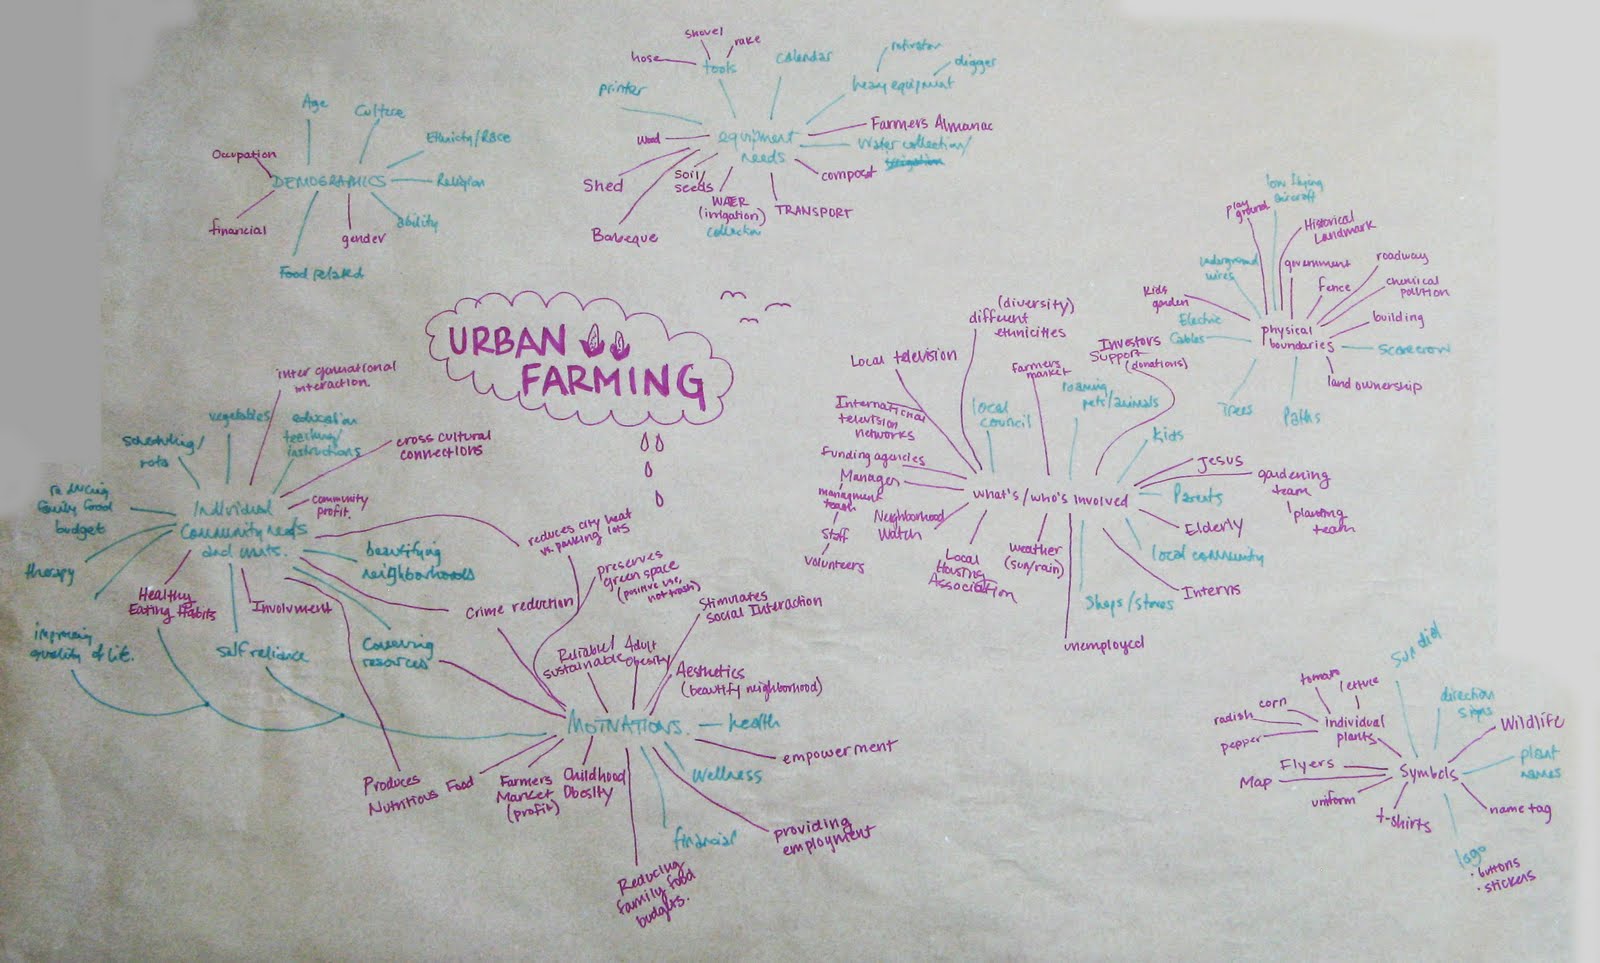 URBAN
FARMING
Age
Culture
Ethnicty/Race
Religion
ability
gender
Food related
financial
Occupation
DEMOGRAPHICS
equipment
needs
printer
tools
hose
shovel
rake
calendar
heavy equipment
digger
Farmers Almanac
Water collection/
compost
TRANSPORT
WATER
(irrigation)
collection
Soil/
seeds
Barbeque
Shed
wood
physical
boundaries
play
ground
low flying
aircraft
Historical
Landmark
government
Fence
roadway
chemical
polution
building
scarecrow
land ownership
Paths
Trees
Electric
Cables
Kids
garden
underground
wires
What's/who's involved
Local television
(diversity)
different
ethnicities
local
council
farmers
market
roaming
pets/animals
Investors
Support
(donations)
Kids
Jesus
gardening
team
planting
team
Parents
Elderly
local community
Interns
Shops/stores
unemployed
weather
(sun/rain)
Local
Housing
Association
Neighborhood
Watch
Manager
managment
team
Staff
volunteers
funding agencies
International
television
networks
Individual
Community needs
and wants.
inter generational
interaction.
vegetables
education
teaching/
instructions
cross cultural
connections
community
profit.
beautifying
neighborhoods
Crime reduction
Conserving
resources
Involvment
self reliance
Healthy
Eating Habits
improving
quality of life.
therapy
reducing
family food
budget
scheduling/
rota
MOTIVATIONS.
reduces city heat
vs. parking lots
preserves
green space
(positive use,
not trash)
Stimulates
Social Interaction
Reliable/
sustainable
Adult
Obesity
Aesthetics
(beautify neighborhood)
health
empowerment
Wellness
providing
employment
financial
Reducing
family food
budgets.
Childhood
Obesity
Farmers
Market
(profit)
Produces
Nutritious Food
Symbols
individual
plants
tomato
lettuce
corn
radish
pepper
Sun dial
direction
signs
Wildlife
plant
names
name tag
logo
· buttons
· stickers
t-shirts
uniform
Map
Flyers